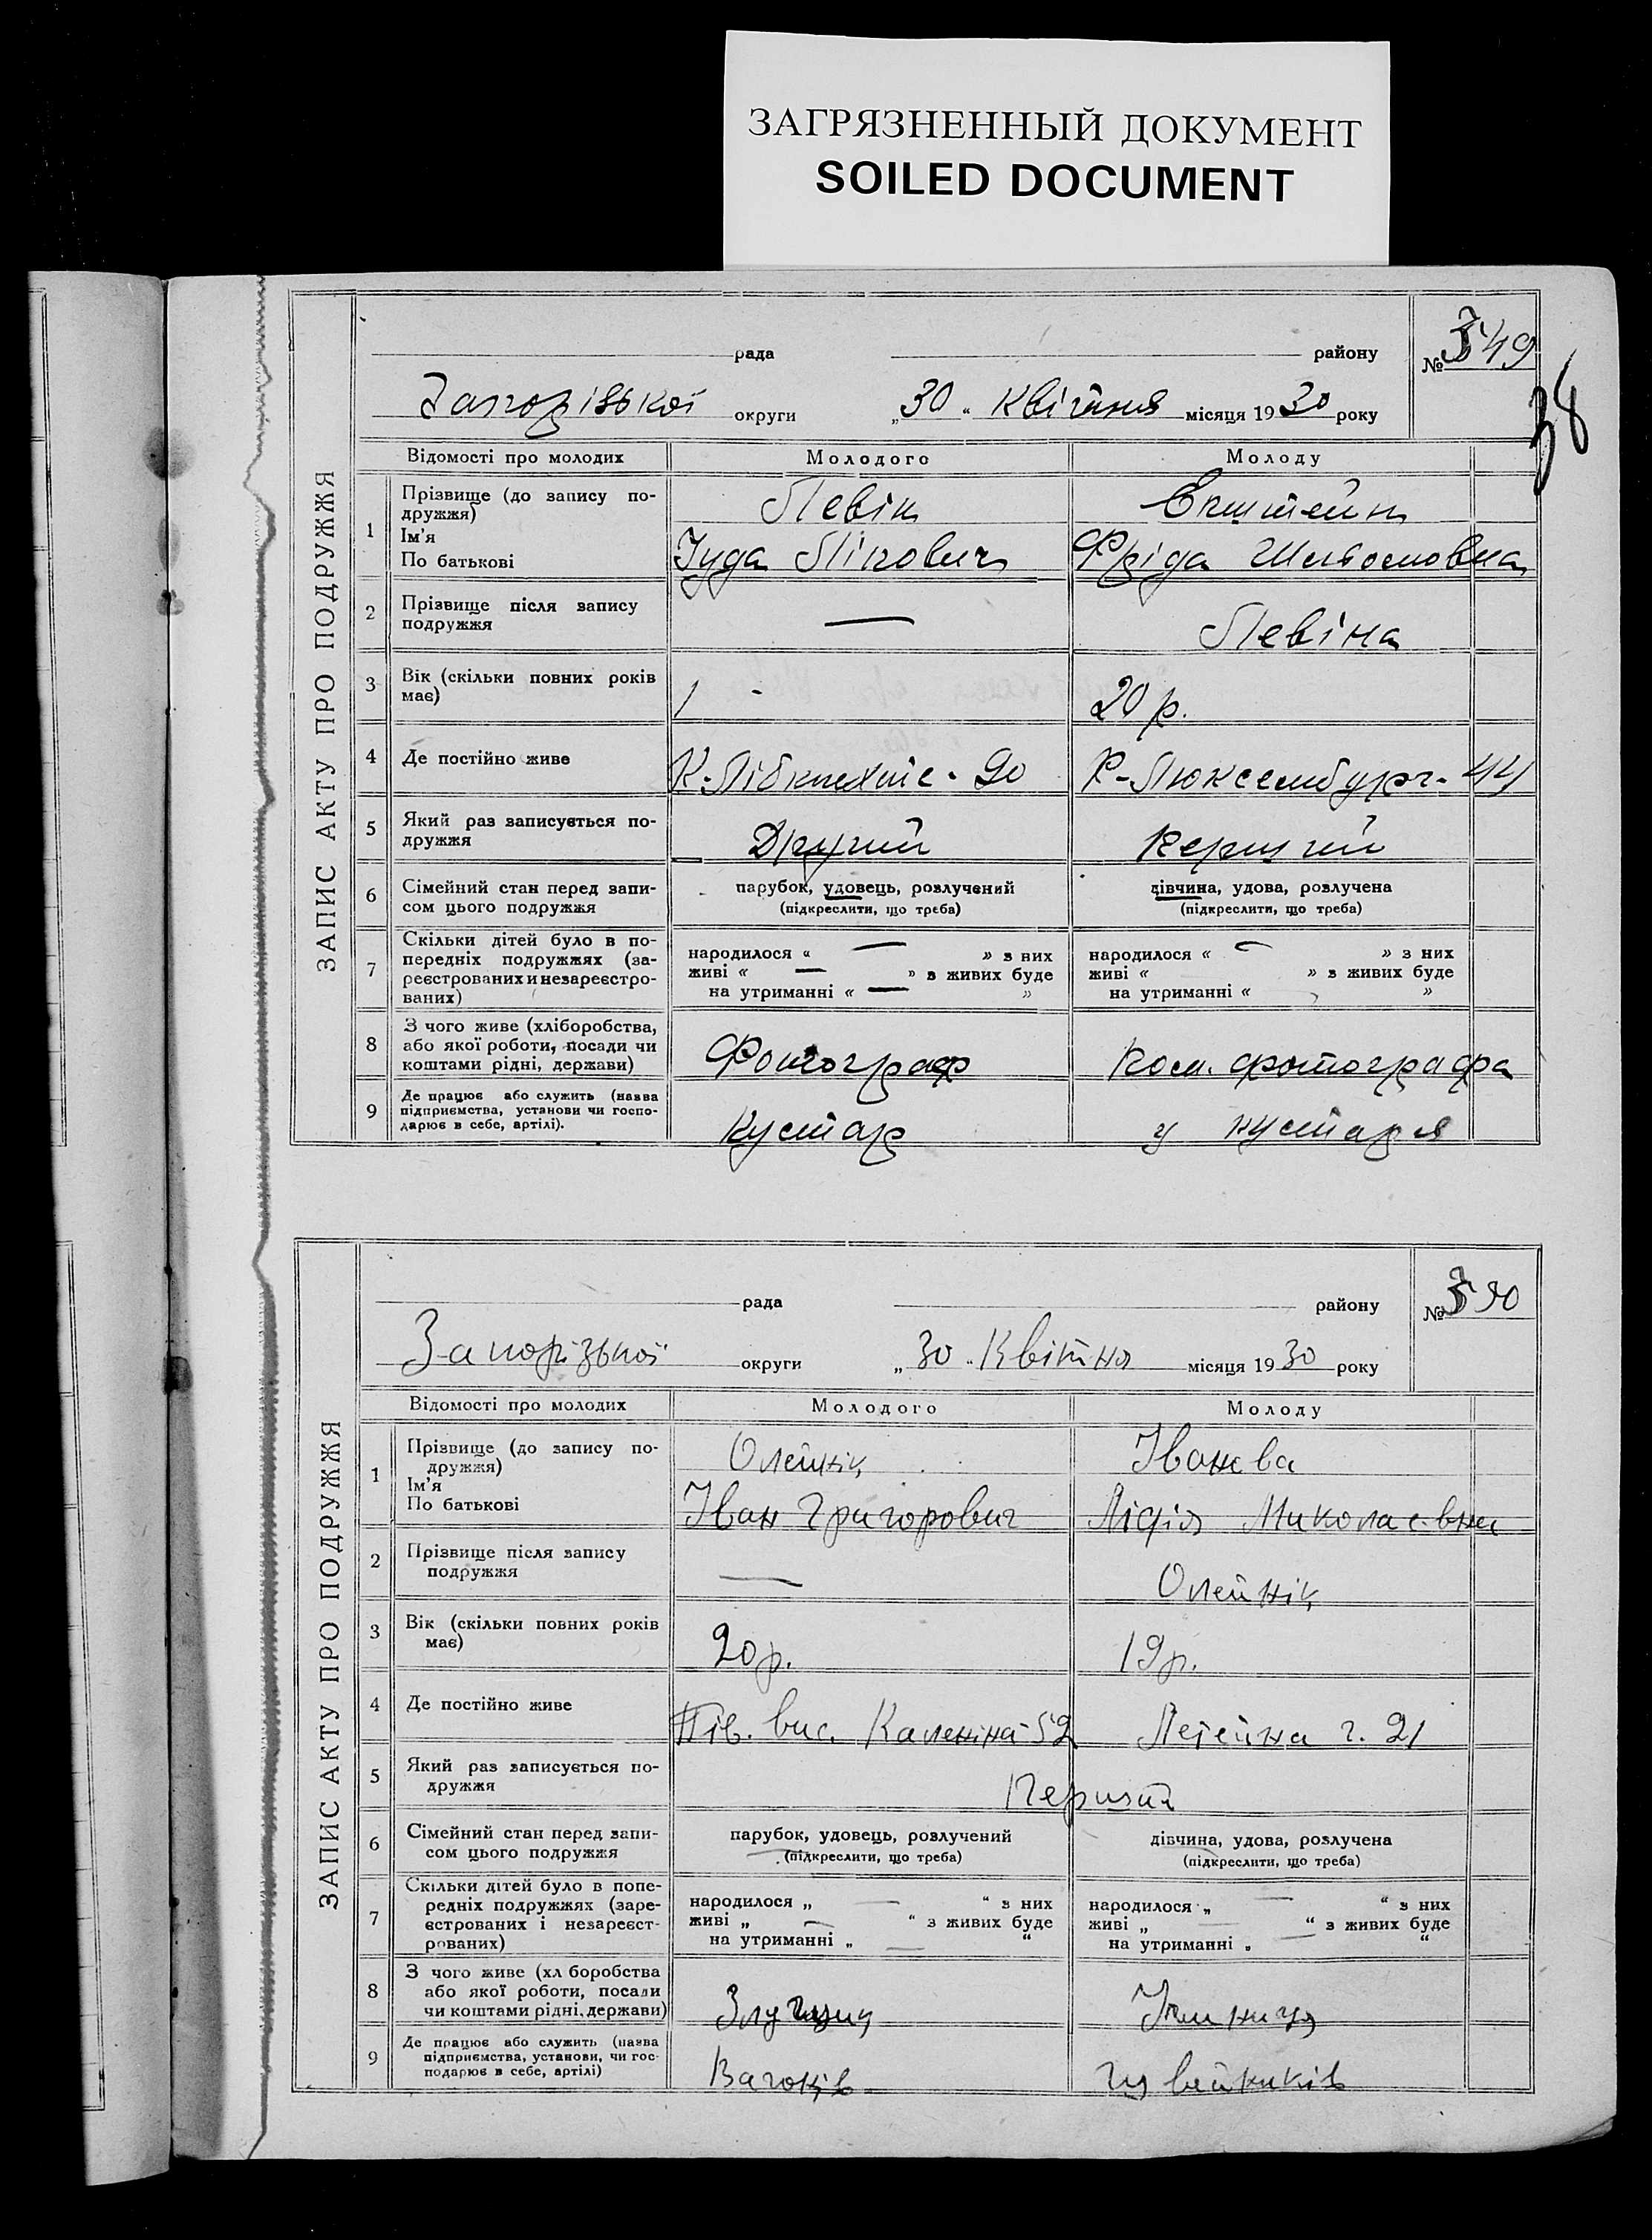 ЗАГРЯЗНЕННЫЙ ДОКУМЕНТ
SOILED DOCUMENT
ЗАПИС АКТУ ПРО ПОДРУЖЖЯ
рада району № 349
38
Запорізької округи „30“ квітня місяця 1930 року
Відомості про молодих Молодого Молоду
1 Прізвище (до запису по-
дружжя)
Ім'я
По батькові
Левін
Іуда
Екштейн
Фріда
2 Прізвище після запису
подружжя
— Левіна
3 Вік (скільки повних років
має)
20 р.
4 Де постійно живе
К-Лібкнехта - 90 Р-Люксембург- 44
5 Який раз записується по-
дружжя
Другий Перший
6 Сімейний стан перед запи-
сом цього подружжя
парубок, удовець, розлучений
(підкреслити, що треба)
дівчина, удова, розлучена
(підкреслити, що треба)
7 Скільки дітей було в по-
передніх подружжях (за-
реєстрованих и незареєстро-
ваних)
народилося « — » з них
живі « — » з живих буде
на утриманні « — »
народилося « — » з них
живі « » з живих буде
на утриманні « »
8 З чого живе (хліборобства,
або якої роботи, посади чи
коштами рідні, держави)
Фотограф пом. фотографа
9 Де працює або служить (назва
підприємства, установи чи госпо-
дарює в себе, артілі).
Кустар у кустаря
ЗАПИС АКТУ ПРО ПОДРУЖЖЯ
рада району № 350
Запорізької округи „30“ Квітня місяця 1930 року
Відомості про молодих Молодого Молоду
1 Прізвище (до запису по-
дружжя)
Ім'я
По батькові
Олейнік
Іван Григорович
Іванова
Лідія Миколаєвна
2 Прізвище після запису
подружжя
— Олейнік
3 Вік (скільки повних років
має)
20 р. 19 р.
4 Де постійно живе
Пів. вис. Калєніна-52 21
5 Який раз записується по-
дружжя
Перший
6 Сімейний стан перед запи-
сом цього подружжя
парубок, удовець, розлучений
(підкреслити, що треба)
дівчина, удова, розлучена
(підкреслити, що треба)
7 Скільки дітей було в попе-
редніх подружжях (заре-
єстрованих і незареєст-
рованих)
народилося „ — “ з них
живі „ — “ з живих буде
на утриманні „ — “
народилося „ — “ з них
живі „ — “ з живих буде
на утриманні „ — “
8 З чого живе (хл боробства
або якої роботи, посади
чи коштами рідні, держави)
9 Де працює або служить (назва
підприємства, установи, чи гос-
подарює в себе, артілі)
Вагонів